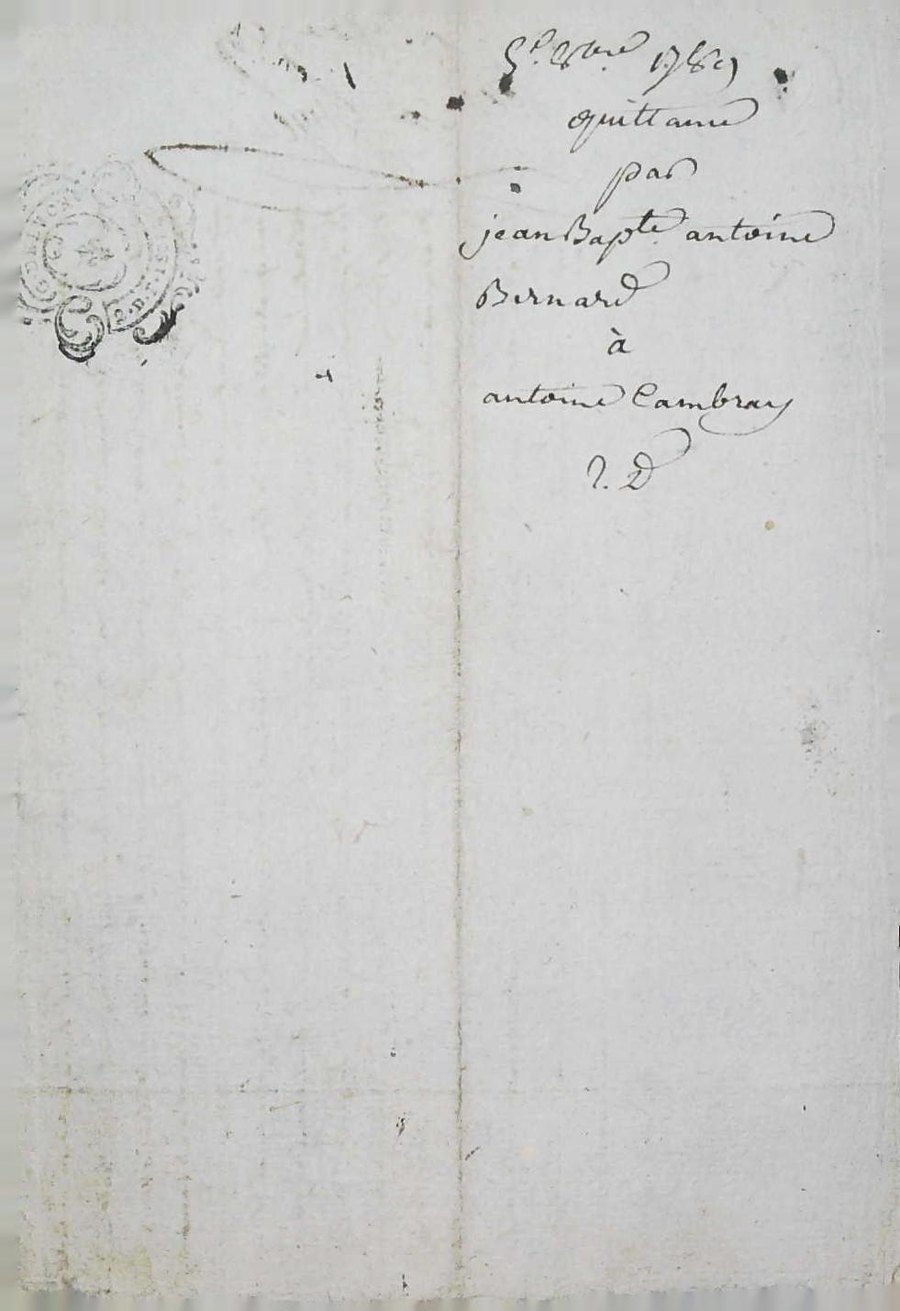 5e. 8bre 1789
quittance
par
jean Bapte antoine
Bernard
à
antoine Cambray